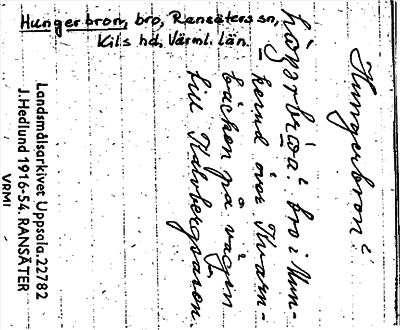 Hungerbron, bro, Ransäters sn,
Kils hd, Värml. län.
Hungerbron:
bro i Mun-
kerud över Kvarn-
bäcken på vägen
till Kalvbergsåsen.
Landsmålsarkivet Uppsala. 22782
J. Hedlund 1916-54. RANSÄTER
VRML